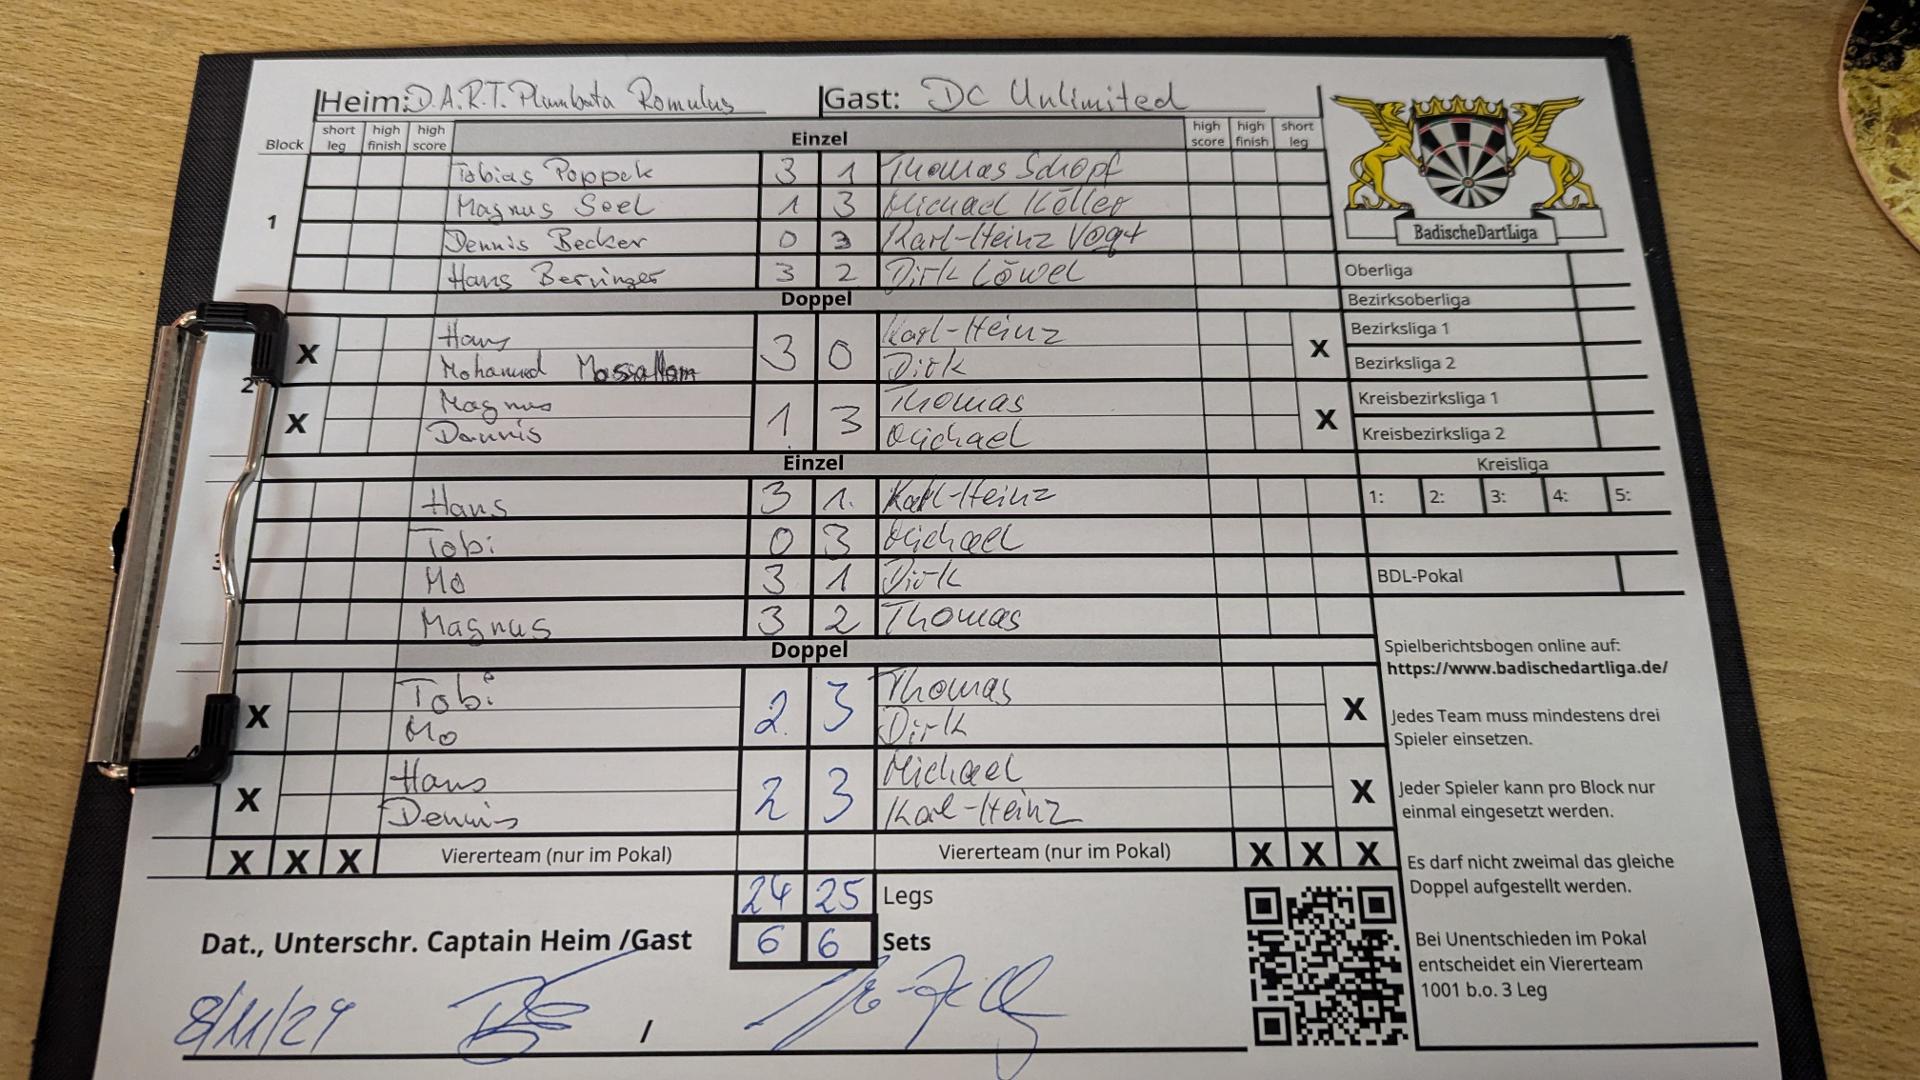 Heim: D.A.R.T. Plumbata Romulus Gast: DC Unlimited
Block short leg high finish high score Einzel high score high finish short leg
Tobias Poppek 3 1 Thomas Schopf
1 Magnus Seel 1 3 Michael Köller
Dennis Becker 0 3 Karl-Heinz Vogt
Hans Berringer 3 2 Dirk Löwel
Doppel
X Hans 3 0 Karl-Heinz X
Mohamed Massallam Dirk
2
X Magnus 1 3 Thomas X
Dennis Michael
Einzel
Hans 3 1 Karl-Heinz
Tobi 0 3 Michael
3 Mo 3 1 Dirk
Magnus 3 2 Thomas
Doppel
X Tobi 2 3 Thomas X
Mo Dirk
X Hans 2 3 Michael X
Dennis Karl-Heinz
X X X Viererteam (nur im Pokal) Viererteam (nur im Pokal) X X X
24 25 Legs
Dat., Unterschr. Captain Heim /Gast 6 6 Sets
8/11/24 /
BadischeDartLiga
Oberliga
Bezirksoberliga
Bezirksliga 1
Bezirksliga 2
Kreisbezirksliga 1
Kreisbezirksliga 2
Kreisliga
1: 2: 3: 4: 5:
BDL-Pokal
Spielberichtsbogen online auf:
https://www.badischedartliga.de/
Jedes Team muss mindestens drei
Spieler einsetzen.
Jeder Spieler kann pro Block nur
einmal eingesetzt werden.
Es darf nicht zweimal das gleiche
Doppel aufgestellt werden.
Bei Unentschieden im Pokal
entscheidet ein Viererteam
1001 b.o. 3 Leg